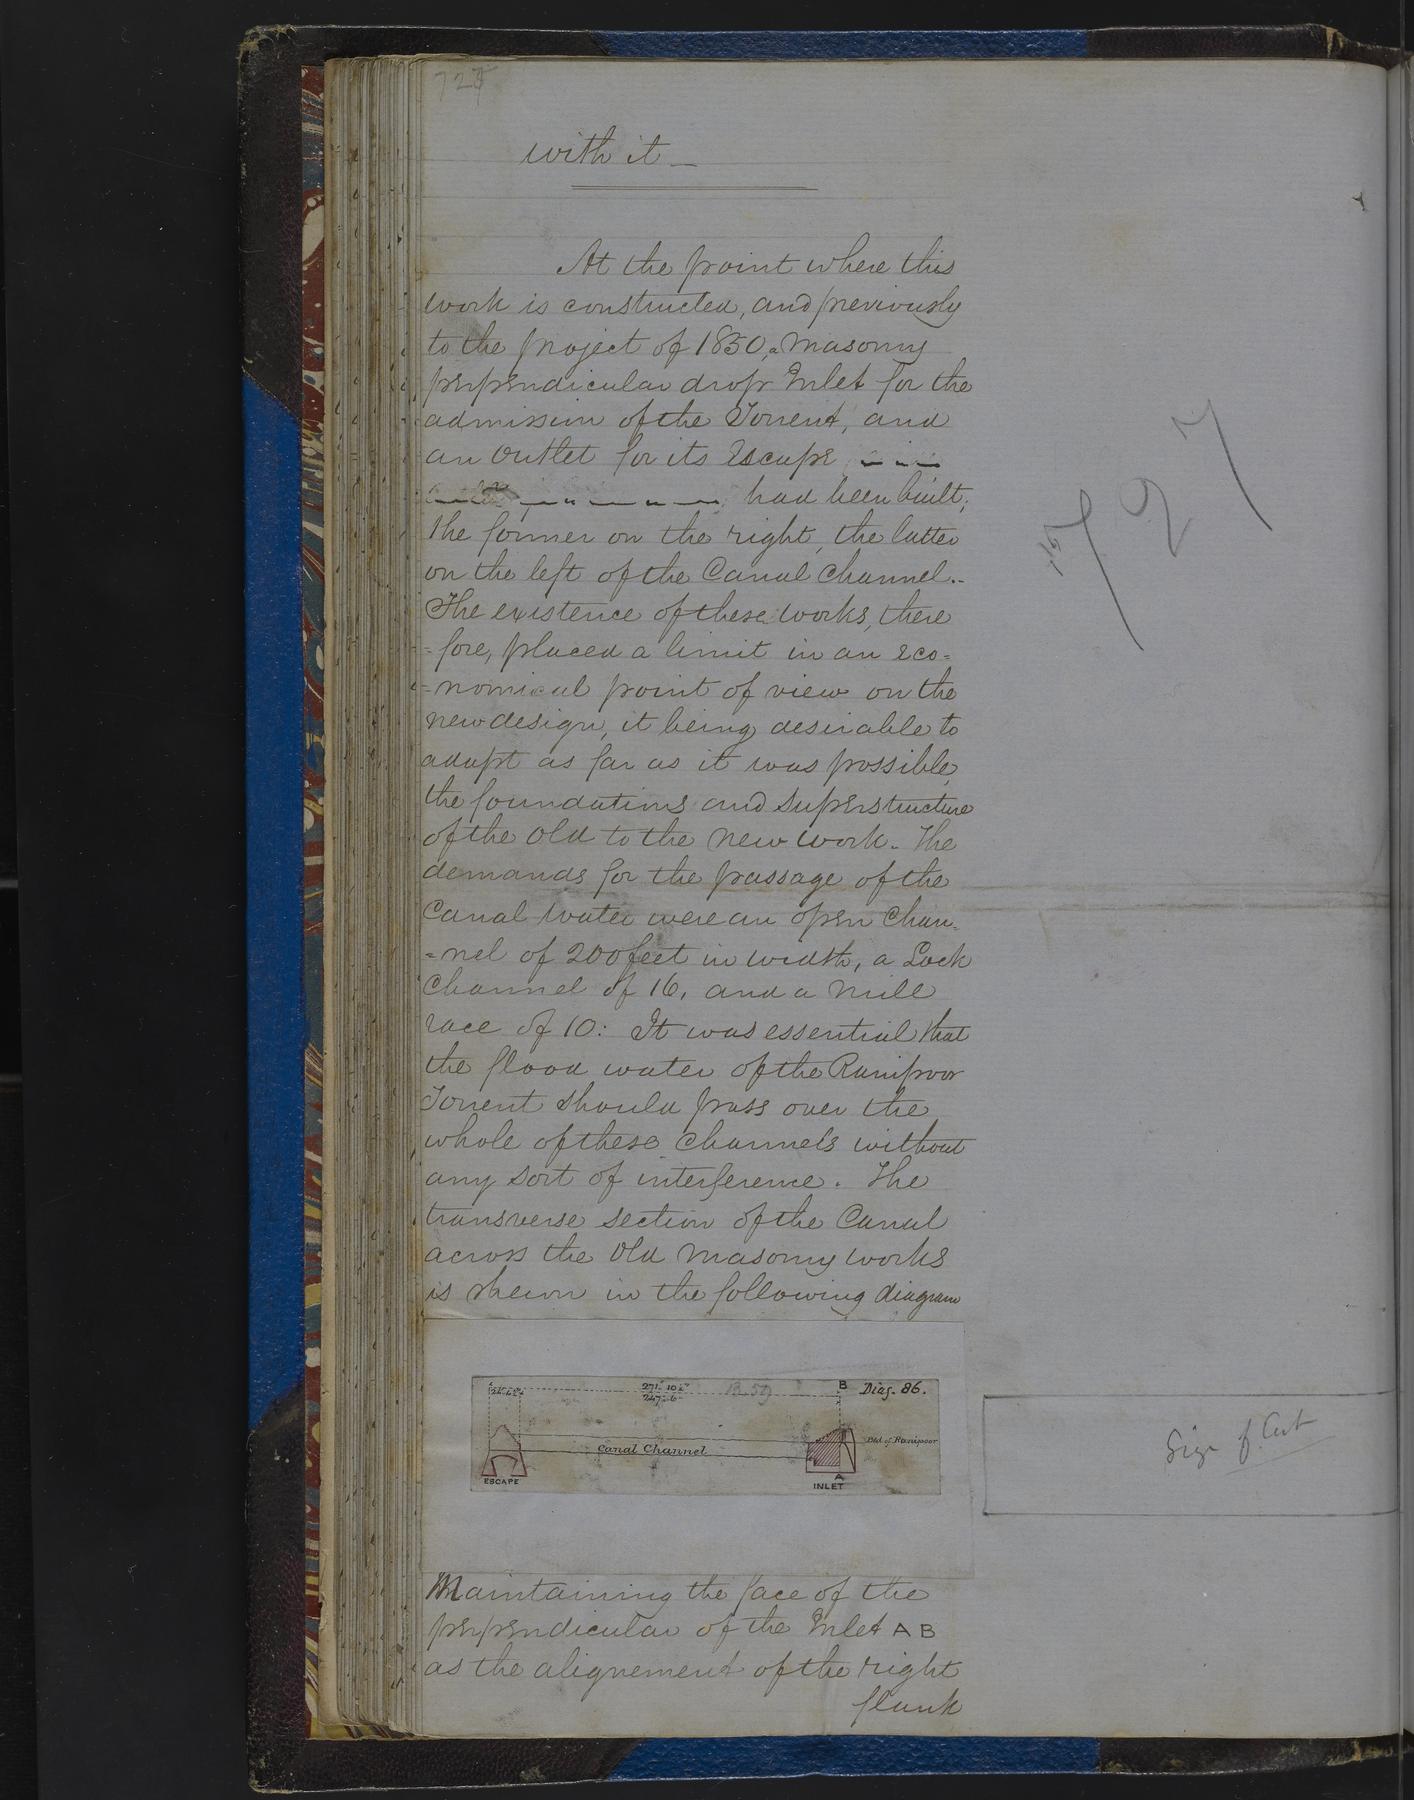 727
with it —
At the point where this
work is constructed, and previously
to the project of 1850, a masonry
perpendicular drop Inlet for the
admission of the Torrent, and
an Outlet for its Escape
had been built;
the former on the right, the latter
on the left of the Canal Channel.-
The existence of these works, there
=fore, placed a limit in an eco=
=nomical point of view on the
new design, it being desirable to
adapt as far as it was possible,
the foundations and superstructure
of the Old to the new work. The
demands for the passage of the
Canal water were an open Chan=
=nel of 200 feet in width, a Lock
Channel of 16, and a Mill
race of 10: It was essential that
the flood water of the Ranipoor
Torrent should pass over the
whole of these Channels without
any sort of interference. The
transverse section of the Canal
across the Old Masonry works
is shewn in the following diagram
B
Diag. 86.
Canal Channel
Bed of Ranipoor
ESCAPE
A
INLET
Maintaining the face of the
perpendicular of the Inlet A B
as the alignement of the right
flank
727
Size of Cut